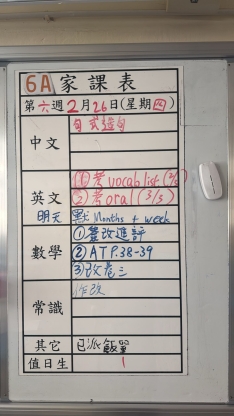 6A 家課表
第六週2月26日(星期四)
中文 句式造句
英文 ① 考 vocab list (2/3)
② 考 oral (3/3)
明天 默 Months + week
數學 ① 簽改進評
② ATP.38-39
③ 改卷三
常識 作改
其它 已派飯單
值日生 1